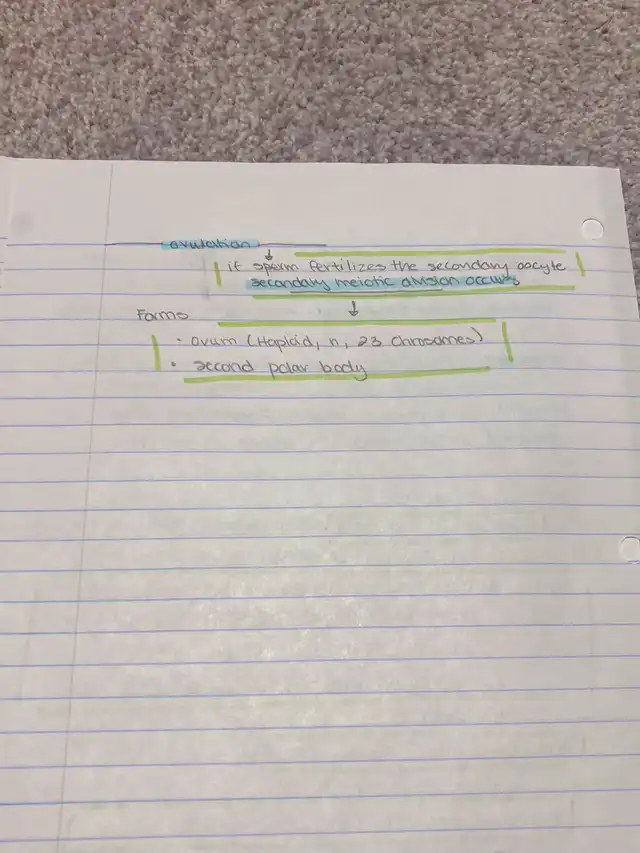 ovulation
if sperm fertilizes the secondary oocyte
secondary meiotic division occurs
Forms
• ovum (Haploid, n, 23 chrosomes)
• second polar body